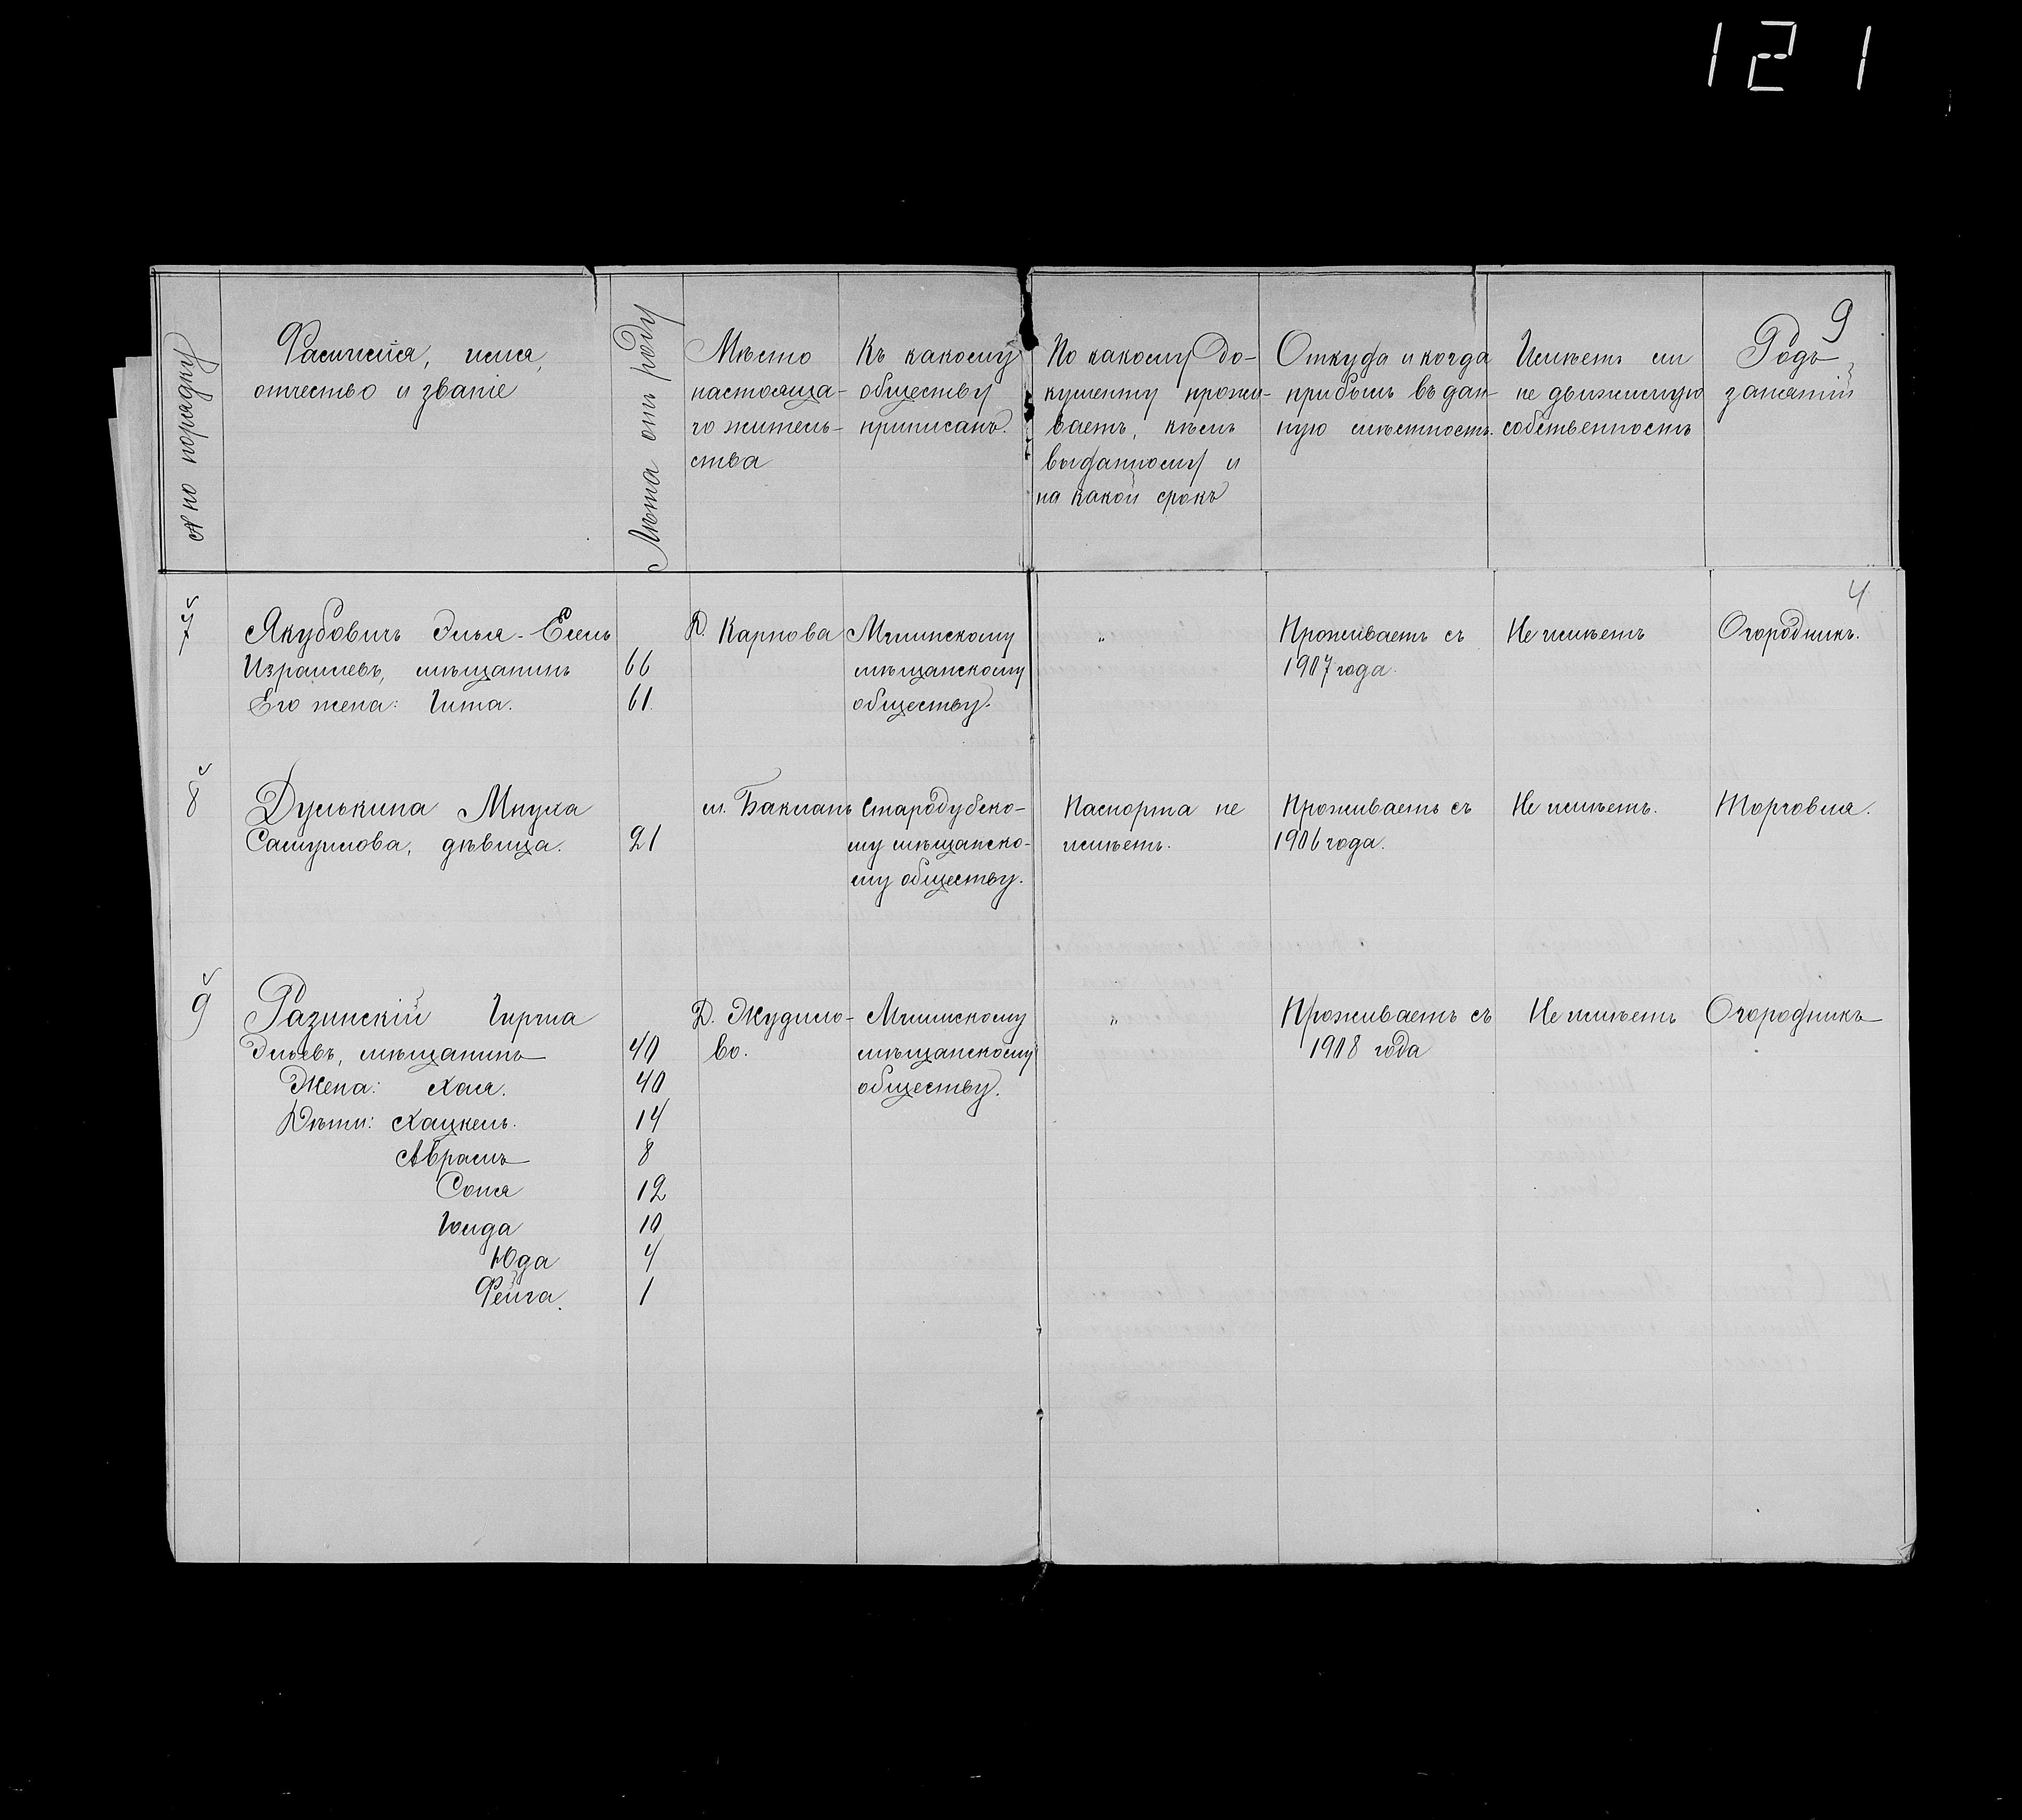 121
9
№ по порядку
Фамилія, имя,
отчество и званіе
Лѣта отъ роду
Мѣсто
настояща-
го житель-
ства
Къ какому
обществу
приписанъ.
По какому до-
кументу прожи-
ваетъ, кѣмъ
выданному и
на какой срокъ
Откуда и когда
прибылъ въ дан-
ную мѣстность.
Имѣетъ ли
не движимую
собственность
Родъ
занятій
4
7
Якубовичъ Элья-
Израилевъ, мѣщанинъ 66
Его жена: Гита. 61.
Д. Карпова
Мглинскому
мѣщанскому
обществу.
"
Проживаетъ съ
1907 года.
Не имѣетъ
Огородникъ.
8
Дулькина Мнуха
Самуилова, дѣвица. 21
м. Баклань
Стародубско-
му мѣщанско-
му обществу.
Паспорта не
имѣетъ.
Проживаетъ съ
1906 года.
Не имѣетъ.
Торговля.
9
Разинскій Гирша
Эльевъ, мѣщанинъ 40
Жена: Хая. 40
Дѣти: Хацкель. 14
Абрамъ 8
Соня 12
10
Юда 4
Фейга. 1
Д. Жудило-
во.
Мглинскому
мѣщанскому
обществу.
"
Проживаетъ съ
1908 года
Не имѣетъ
Огородникъ